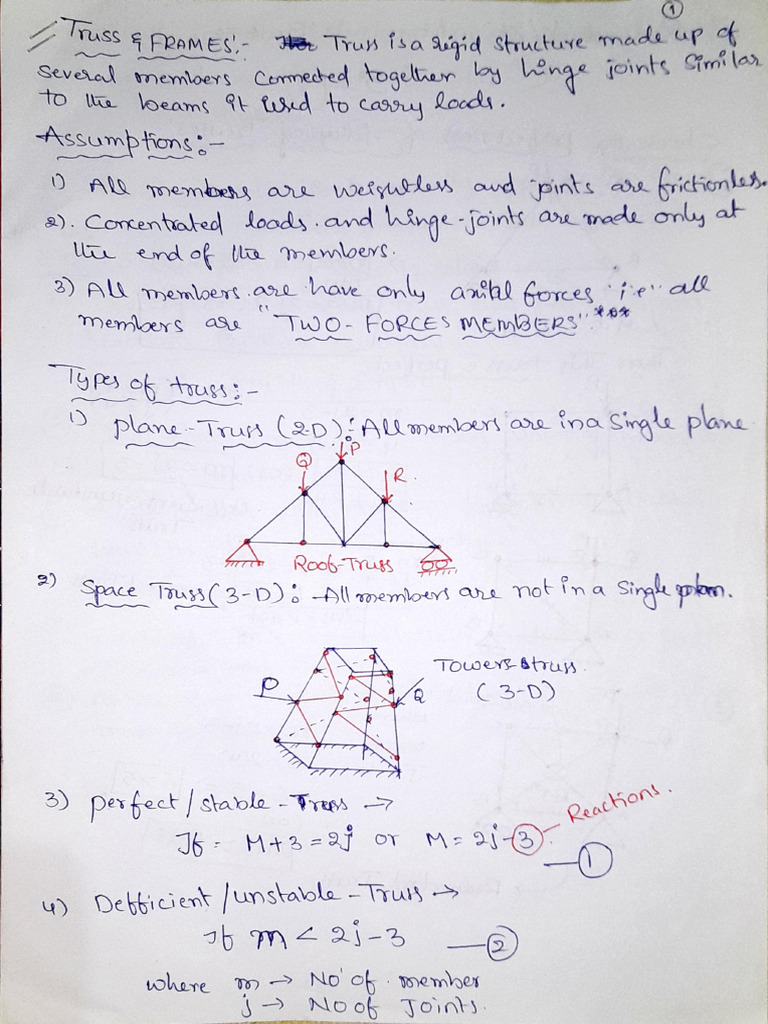 ①
Truss & FRAMES:- Truss is a rigid structure made up of
several members connected together by hinge joints similar
to the beams it used to carry loads.
Assumptions:-
1) All members are weightless and joints are frictionless.
2). Concentrated loads. and hinge-joints are made only at
the end of the members.
3) All members are have only axial forces "i.e" all
members are "TWO-FORCES MEMBERS".***
Types of truss:-
1) plane-Truss (2-D): All members are in a single plane
Q P R.
Roof-Truss
2) Space Truss (3-D): All members are not in a single plan.
Towers-truss
P Q (3-D)
3) perfect/stable-Truss →
Reactions.
If M+3=2j or M=2j-3 —①
4) Defficient/unstable-Truss →
If m < 2j-3 —②
where m → No of member
j → No of Joints.